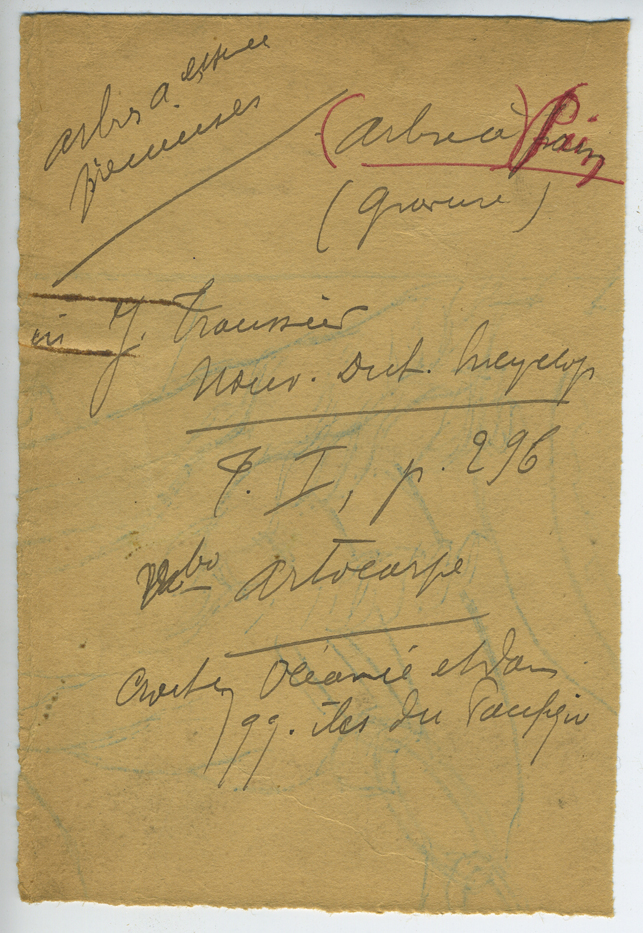 arbres à essence
précieuses
(arbre à pain) Pain
(Gravure)
in J. Trousset
Nouv. Dict. Encyclop
T. I, p. 296
Vbo Artocarpe
Croît en Océanie et dans
qq. îles du Pacifique